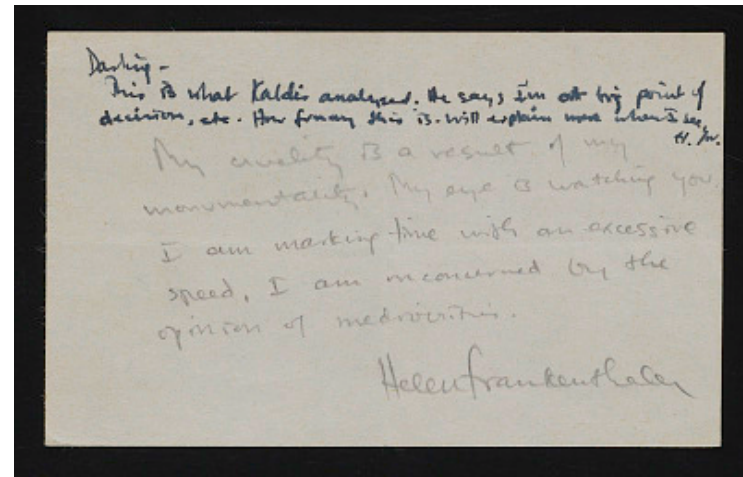 Darling —
This is what Kaldis analyzed. He says I'm at big point of
decision, etc. How funny this is. Will explain more when I see
My cruelty is a result of my
monumentality. My eye is watching you.
I am marking time with an excessive
speed, I am unconcerned by the
opinion of mediocrities.
Helen Frankenthaler